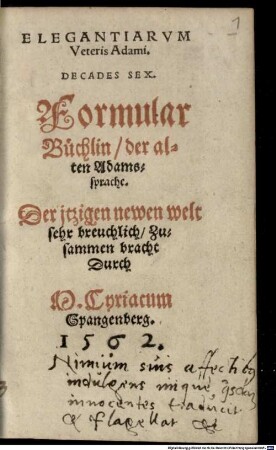 1
ELEGANTIARVM
Veteris Adami.
DECADES SEX.
Formular
Büchlin/der al-
ten Adams-
sprache.
Der jtzigen newen welt
sehr breuchlich/Zu-
sammen bracht
Durch
M. Cyriacum
Spangenberg.
1562.
Nimium suis affectib9
indulgens
innocentes traducit
& flagellat &c